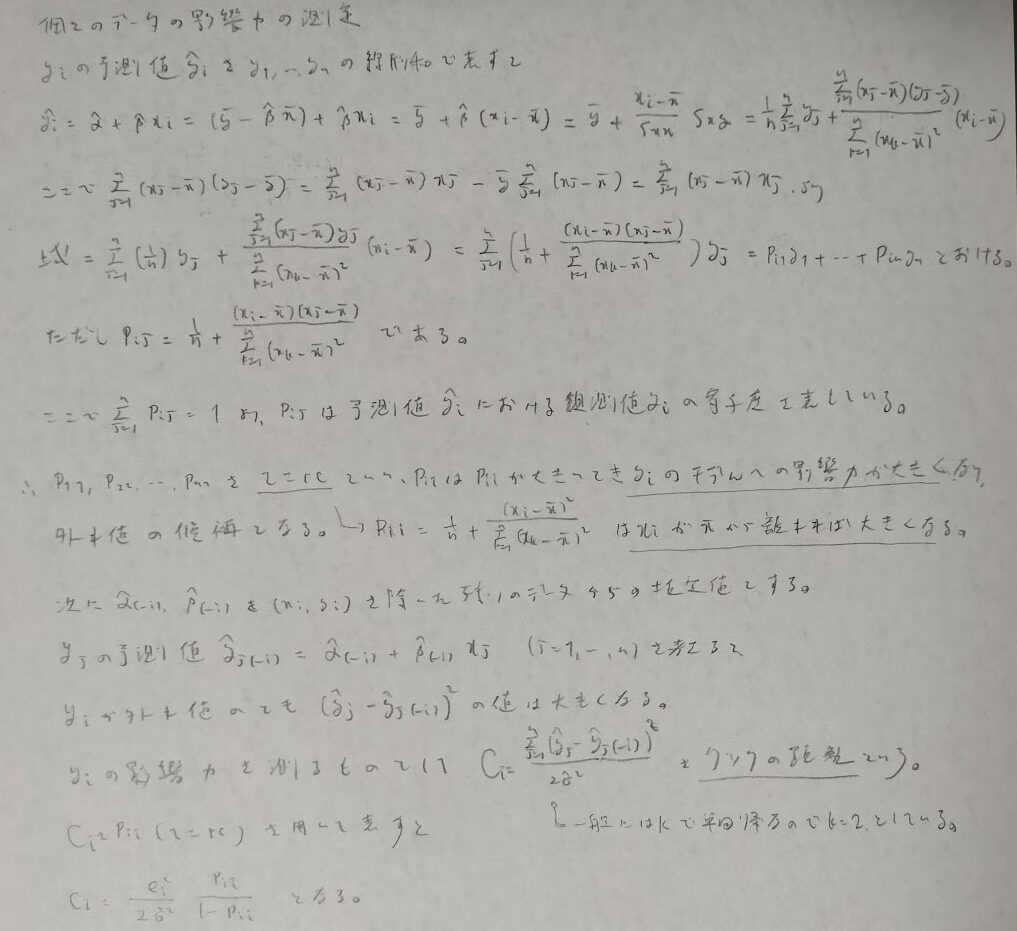 個々のデータの影響力の測定
yiの予測値ŷiをy1,…,ynの線形和で表すと
ŷi = α̂ + β̂xi = (ȳ − β̂x̄) + β̂xi = ȳ + β̂(xi − x̄) = ȳ + (xi − x̄)/Sxx Sxy = 1/n Σ[j=1,n] yj + Σ[j=1,n](xj − x̄)(yj − ȳ) / Σ[k=1,n](xk − x̄)² (xi − x̄)
ここで Σ[j=1,n](xj − x̄)(yj − ȳ) = Σ[j=1,n](xj − x̄)xj − ȳ Σ[j=1,n](xj − x̄) = Σ[j=1,n](xj − x̄)xj より
上式 = Σ[j=1,n](1/n)yj + Σ[j=1,n](xj − x̄)yj / Σ[k=1,n](xk − x̄)² (xi − x̄) = Σ[j=1,n](1/n + (xi − x̄)(xj − x̄) / Σ[k=1,n](xk − x̄)²)yj = Pi1y1 + … + Pinyn とおける。
ただし Pij = 1/n + (xi − x̄)(xj − x̄) / Σ[k=1,n](xk − x̄)² である。
ここで Σ[j=1,n] Pij = 1 より, Pijは予測値ŷiにおける観測値yiの寄与度を表している。
∴ P11, P22, …, Pnnを てこ比 といい、PiiはPiiが大きいときyiのモデルへの影響力が大きくなり,
外れ値の候補となる。 ↳ Pii = 1/n + (xi − x̄)² / Σ[k=1,n](xk − x̄)² はxiがx̄から離れれば大きくなる。
次に α̂(-i), β̂(-i)を(xi, yi)を除いた残りのデータからの推定値とする。
yjの予測値 ŷj(-i) = α̂(-i) + β̂(-i) xj (j=1,…,n) を考えると
yiが外れ値のとき (ŷj − ŷj(-i))² の値は大きくなる。
yiの影響力を測るものとして Ci = Σ[j=1,n](ŷj − ŷj(-i))² / 2σ̂² をクックの距離という。
Ciを Pii (てこ比) を用いて表すと
↳一般にはkで単回帰なのでk=2としている。
Ci = ei²/2σ̂² Pii/(1 − Pii) となる。